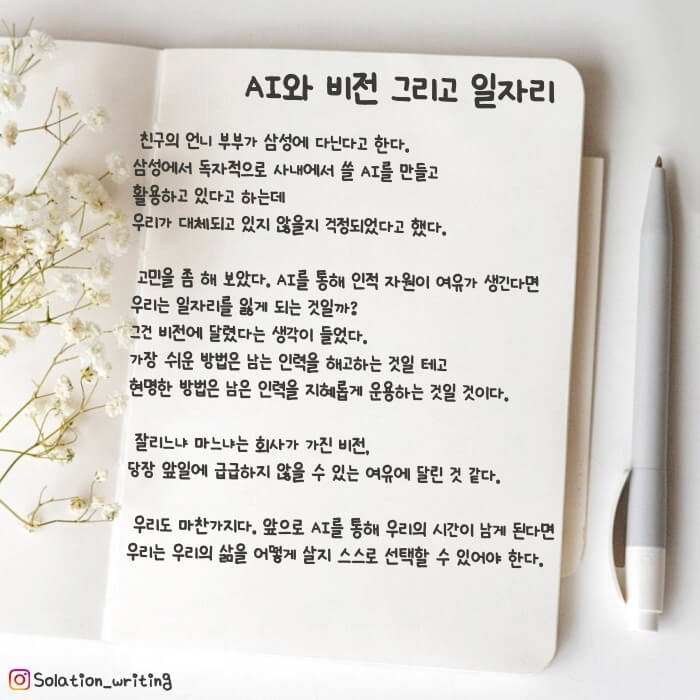 AI와 비전 그리고 일자리
친구의 언니 부부가 삼성에 다닌다고 한다.
삼성에서 독자적으로 사내에서 쓸 AI를 만들고
활용하고 있다고 하는데
우리가 대체되고 있지 않을지 걱정되었다고 했다.
고민을 좀 해 보았다. AI를 통해 인적 자원이 여유가 생긴다면
우리는 일자리를 잃게 되는 것일까?
그건 비전에 달렸다는 생각이 들었다.
가장 쉬운 방법은 남는 인력을 해고하는 것일 테고
현명한 방법은 남은 인력을 지혜롭게 운용하는 것일 것이다.
잘리느냐 마느냐는 회사가 가진 비전,
당장 앞일에 급급하지 않을 수 있는 여유에 달린 것 같다.
우리도 마찬가지다. 앞으로 AI를 통해 우리의 시간이 남게 된다면
우리는 우리의 삶을 어떻게 살지 스스로 선택할 수 있어야 한다.
Solation_writing